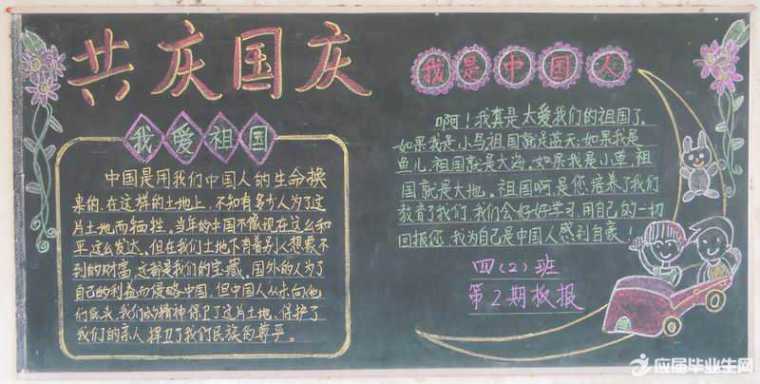 共庆国庆
我爱祖国
中国是用我们中国人的生命换
来的,在这样的土地上,不知有多少人为了这
片土地而牺牲。当年的中国不像现在这么和
平这么发达。但在我们土地下有着别人想象不
到的财富,这都是我们的宝藏。国外的人为了
自己的利益而侵略中国,但中国人从未向他
们屈服,我们的精神保卫了这片土地、保护了
我们的亲人,捍卫了我们民族的尊严。
我是中国人
啊!我真是太爱我们的祖国了。
如果我是小鸟,祖国就是蓝天,如果我是
鱼儿,祖国就是大海。如果我是小草,祖
国就是大地。祖国啊是您培养了我们
教育了我们,我们会好好学习,用自己的一切
回报您,我为自己是中国人感到自豪!
四(2)班
第2期板报
应届毕业生网